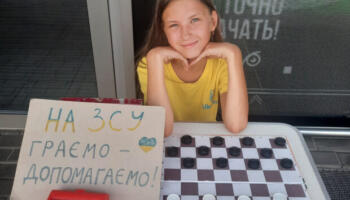 НА ЗСУ
ГРАЄМО –
ДОПОМАГАЄМО!
ТОЧНО
АЧАТЬ!